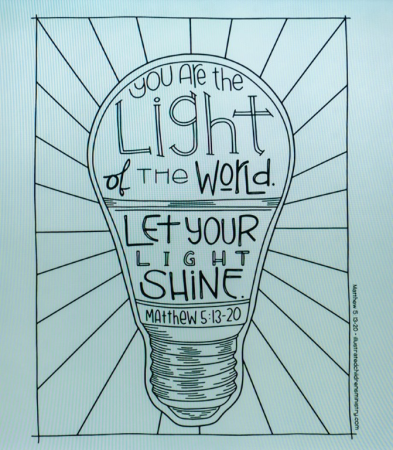 you Are the
Light
of THE World.
LET YOUR
LIGHT
SHINE.
MATTHEW 5:13-20
Matthew 5: 13-20 • illustratedchildrensministry.com